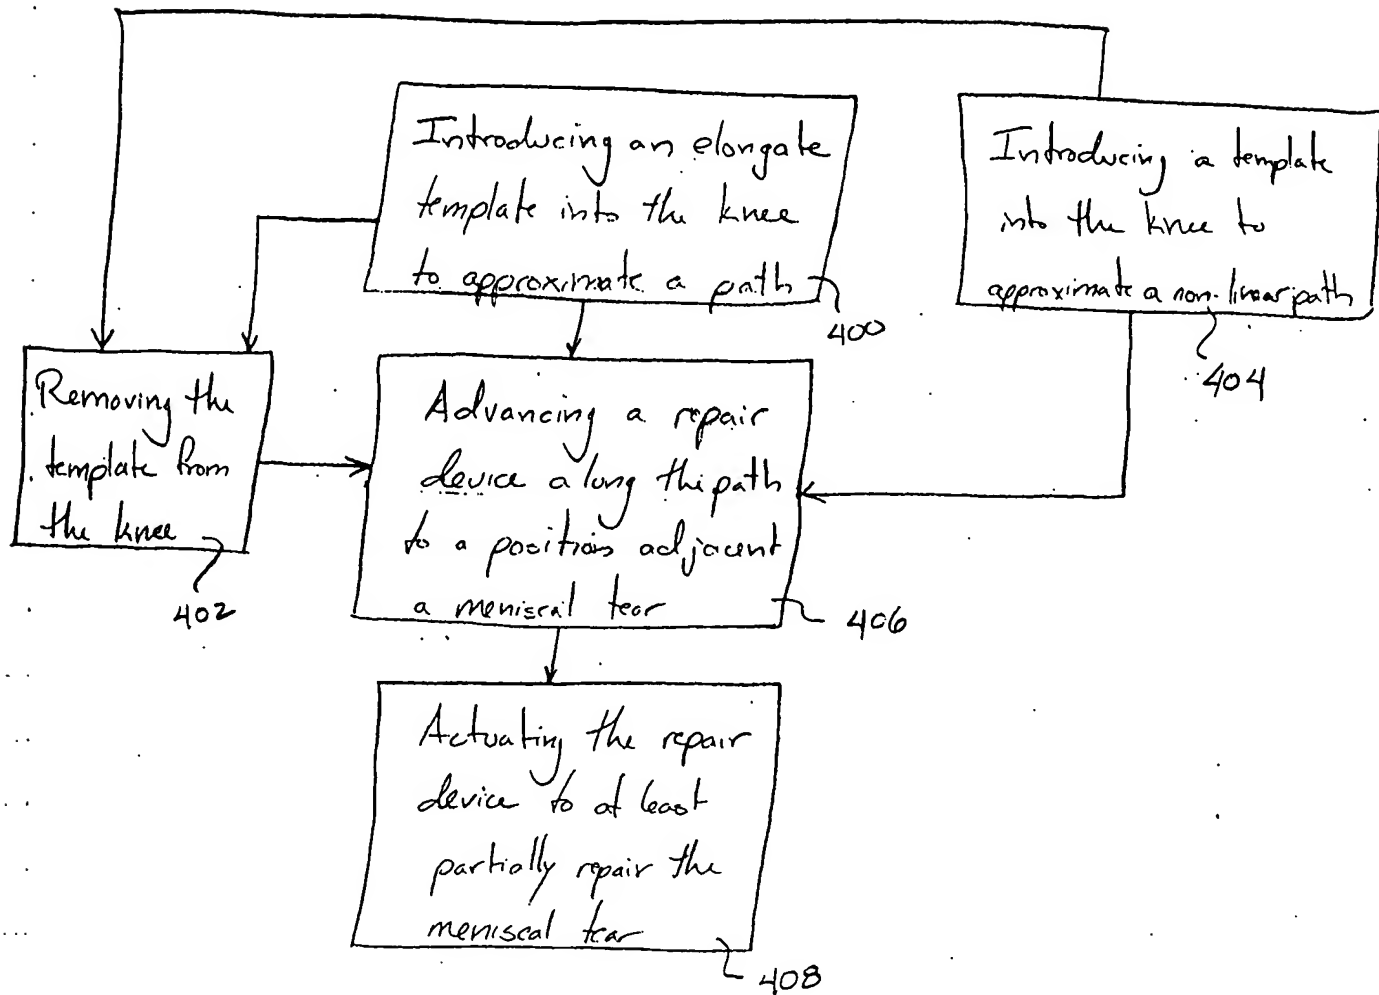 Introducing an elongate
template into the knee
to approximate a path
400
Introducing a template
into the knee to
approximate a non-linear path
404
Removing the
template from
the knee
402
Advancing a repair
device along the path
to a position adjacent
a meniscal tear
406
Actuating the repair
device to at least
partially repair the
meniscal tear
408